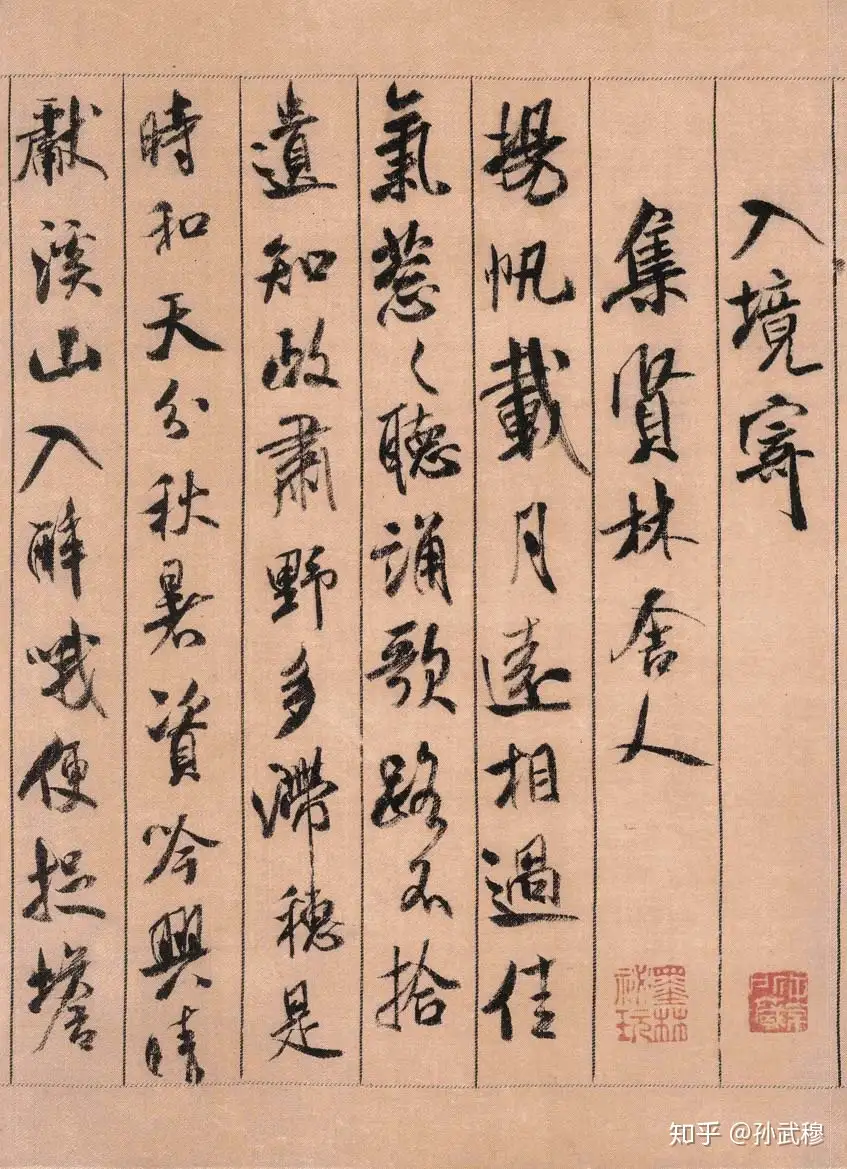 入境寄
集賢林舍人
揚帆載月遠相過佳
氣葱々聽誦歌路不拾
遺知政肅野多滯穗是
時和天分秋暑資吟興晴
獻溪山入醉哦便捉蟾
墨林秘玩
知乎 @孙武穆